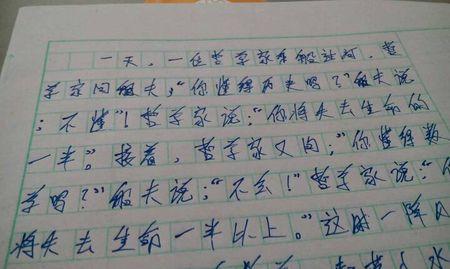 一天,一位哲学家乘船过河,哲
学家问船夫:“你懂得历史吗?”船夫说
:不懂”!哲学家说:“你将失去生命的
一半。”接着,哲学家又问:“你懂得数
学吗?”船夫说:“不会!”哲学家说:“你
将失去生命一半以上。”这时一阵风
水